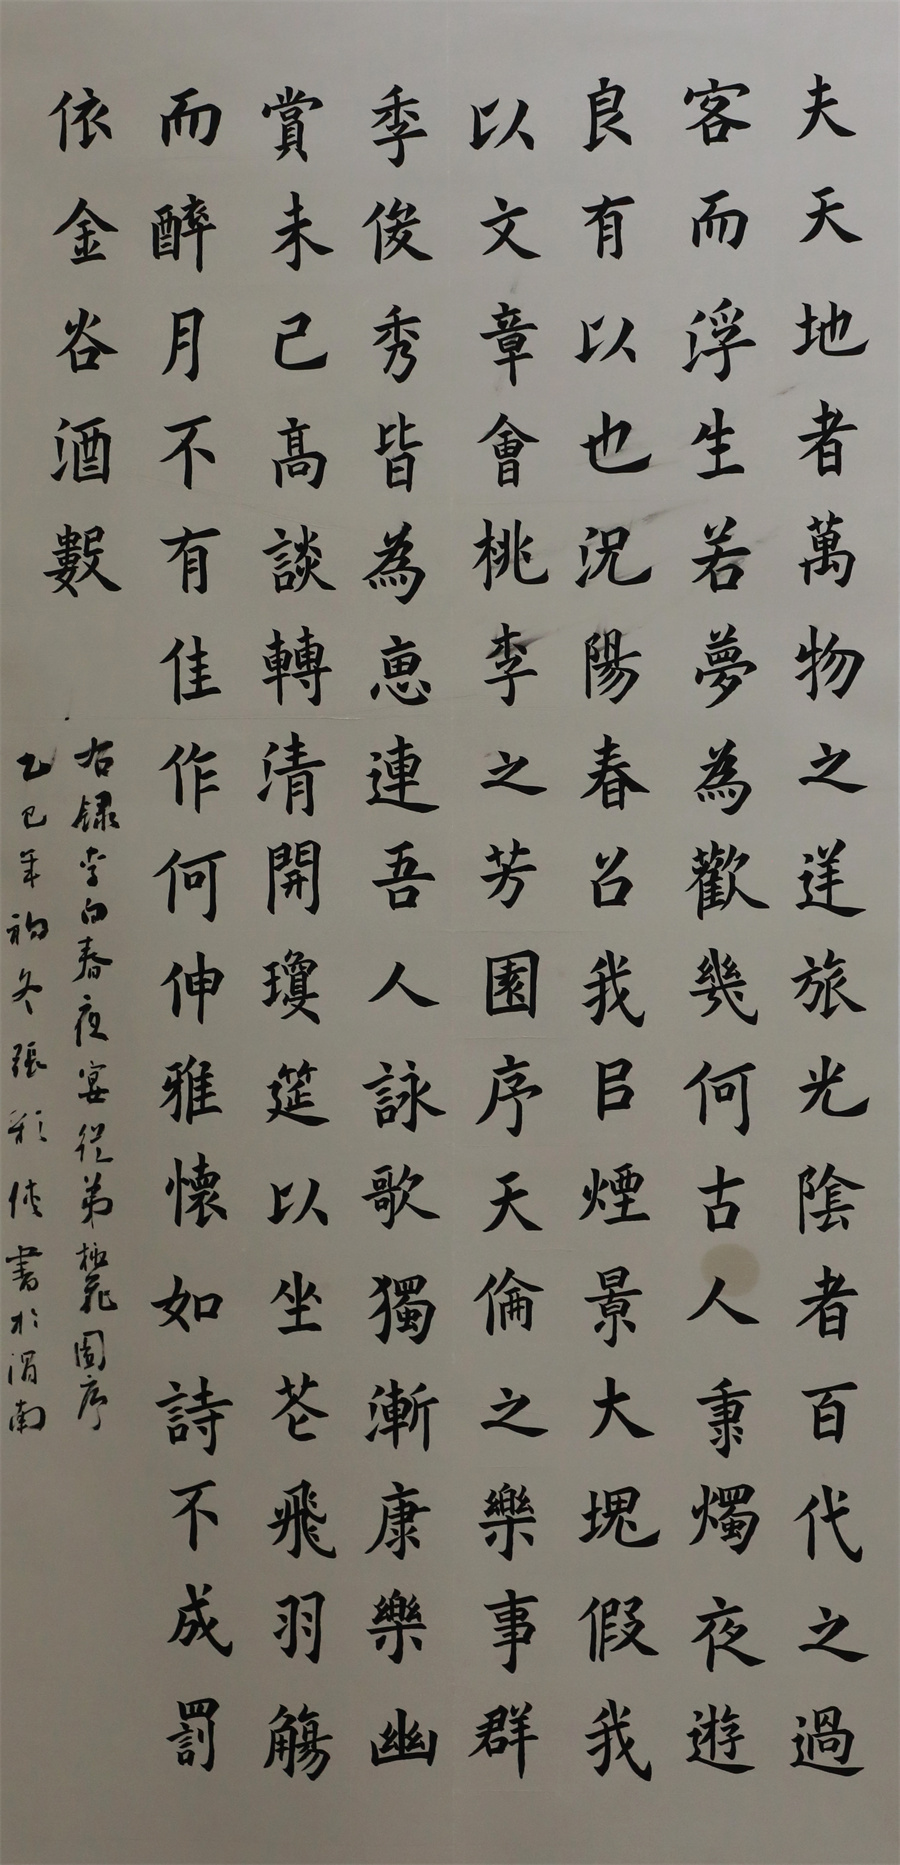 夫天地者萬物之逆旅光陰者百代之過
客而浮生若夢為歡幾何古人秉燭夜遊
良有以也況陽春召我㠯煙景大塊假我
以文章會桃李之芳園序天倫之樂事群
季俊秀皆為惠連吾人詠歌獨漸康樂幽
賞未已高談轉清開瓊筵以坐花飛羽觴
而醉月不有佳作何伸雅懷如詩不成罰
依金谷酒數
右錄李白春夜宴從弟桃花園序
乙巳年初冬張彩俠書於渭南